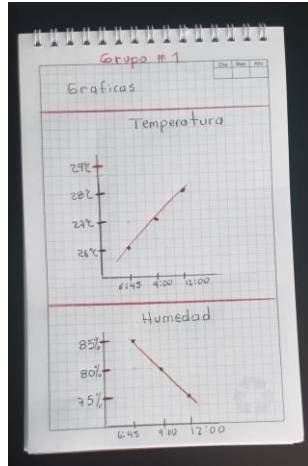 Grupo # 1
Día Mes Año
Graficas
Temperatura
29℃
28℃
27℃
26℃
6:45 9:00 12:00
Humedad
85%
80%
75%
6:45 9:00 12:00